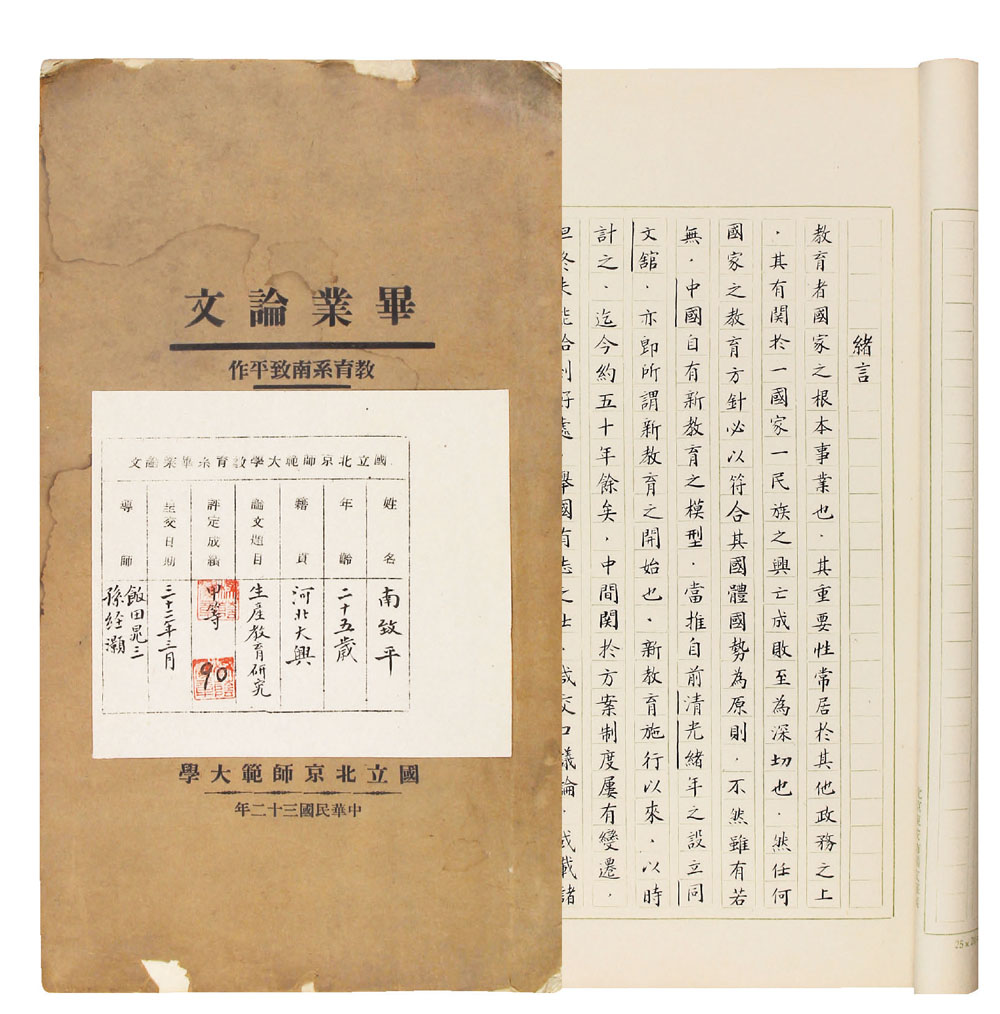 畢業論文
教育系南致平作
國立北京師範大學教育系畢業論文
姓名
南致平
年齡
二十五歲
籍貫
河北大興
論文題目
生產教育研究
評定成績
甲等
90
呈交日期
三十二年三月
導師
飯田晁三
孫經灝
國立北京師範大學
中華民國三十二年
緒言
教育者國家之根本事業也．其重要性常居於其他政務之上
．其有関於一國家一民族之興亡成敗至為深切也．然任何
國家之教育方針必以符合其國體國勢為原則．不然雖有若
無．中國自有新教育之模型．當推自前清光緒年之設立同
文舘．亦即所謂新教育之開始也．新教育施行以來．以時
計之．迄今約五十年餘矣．中間関於方案制度屢有變遷．